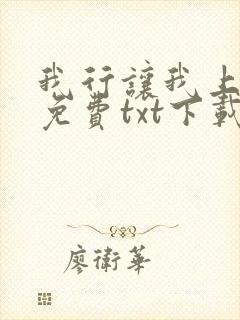 我行讓我上
免費txt下載
廖衛華